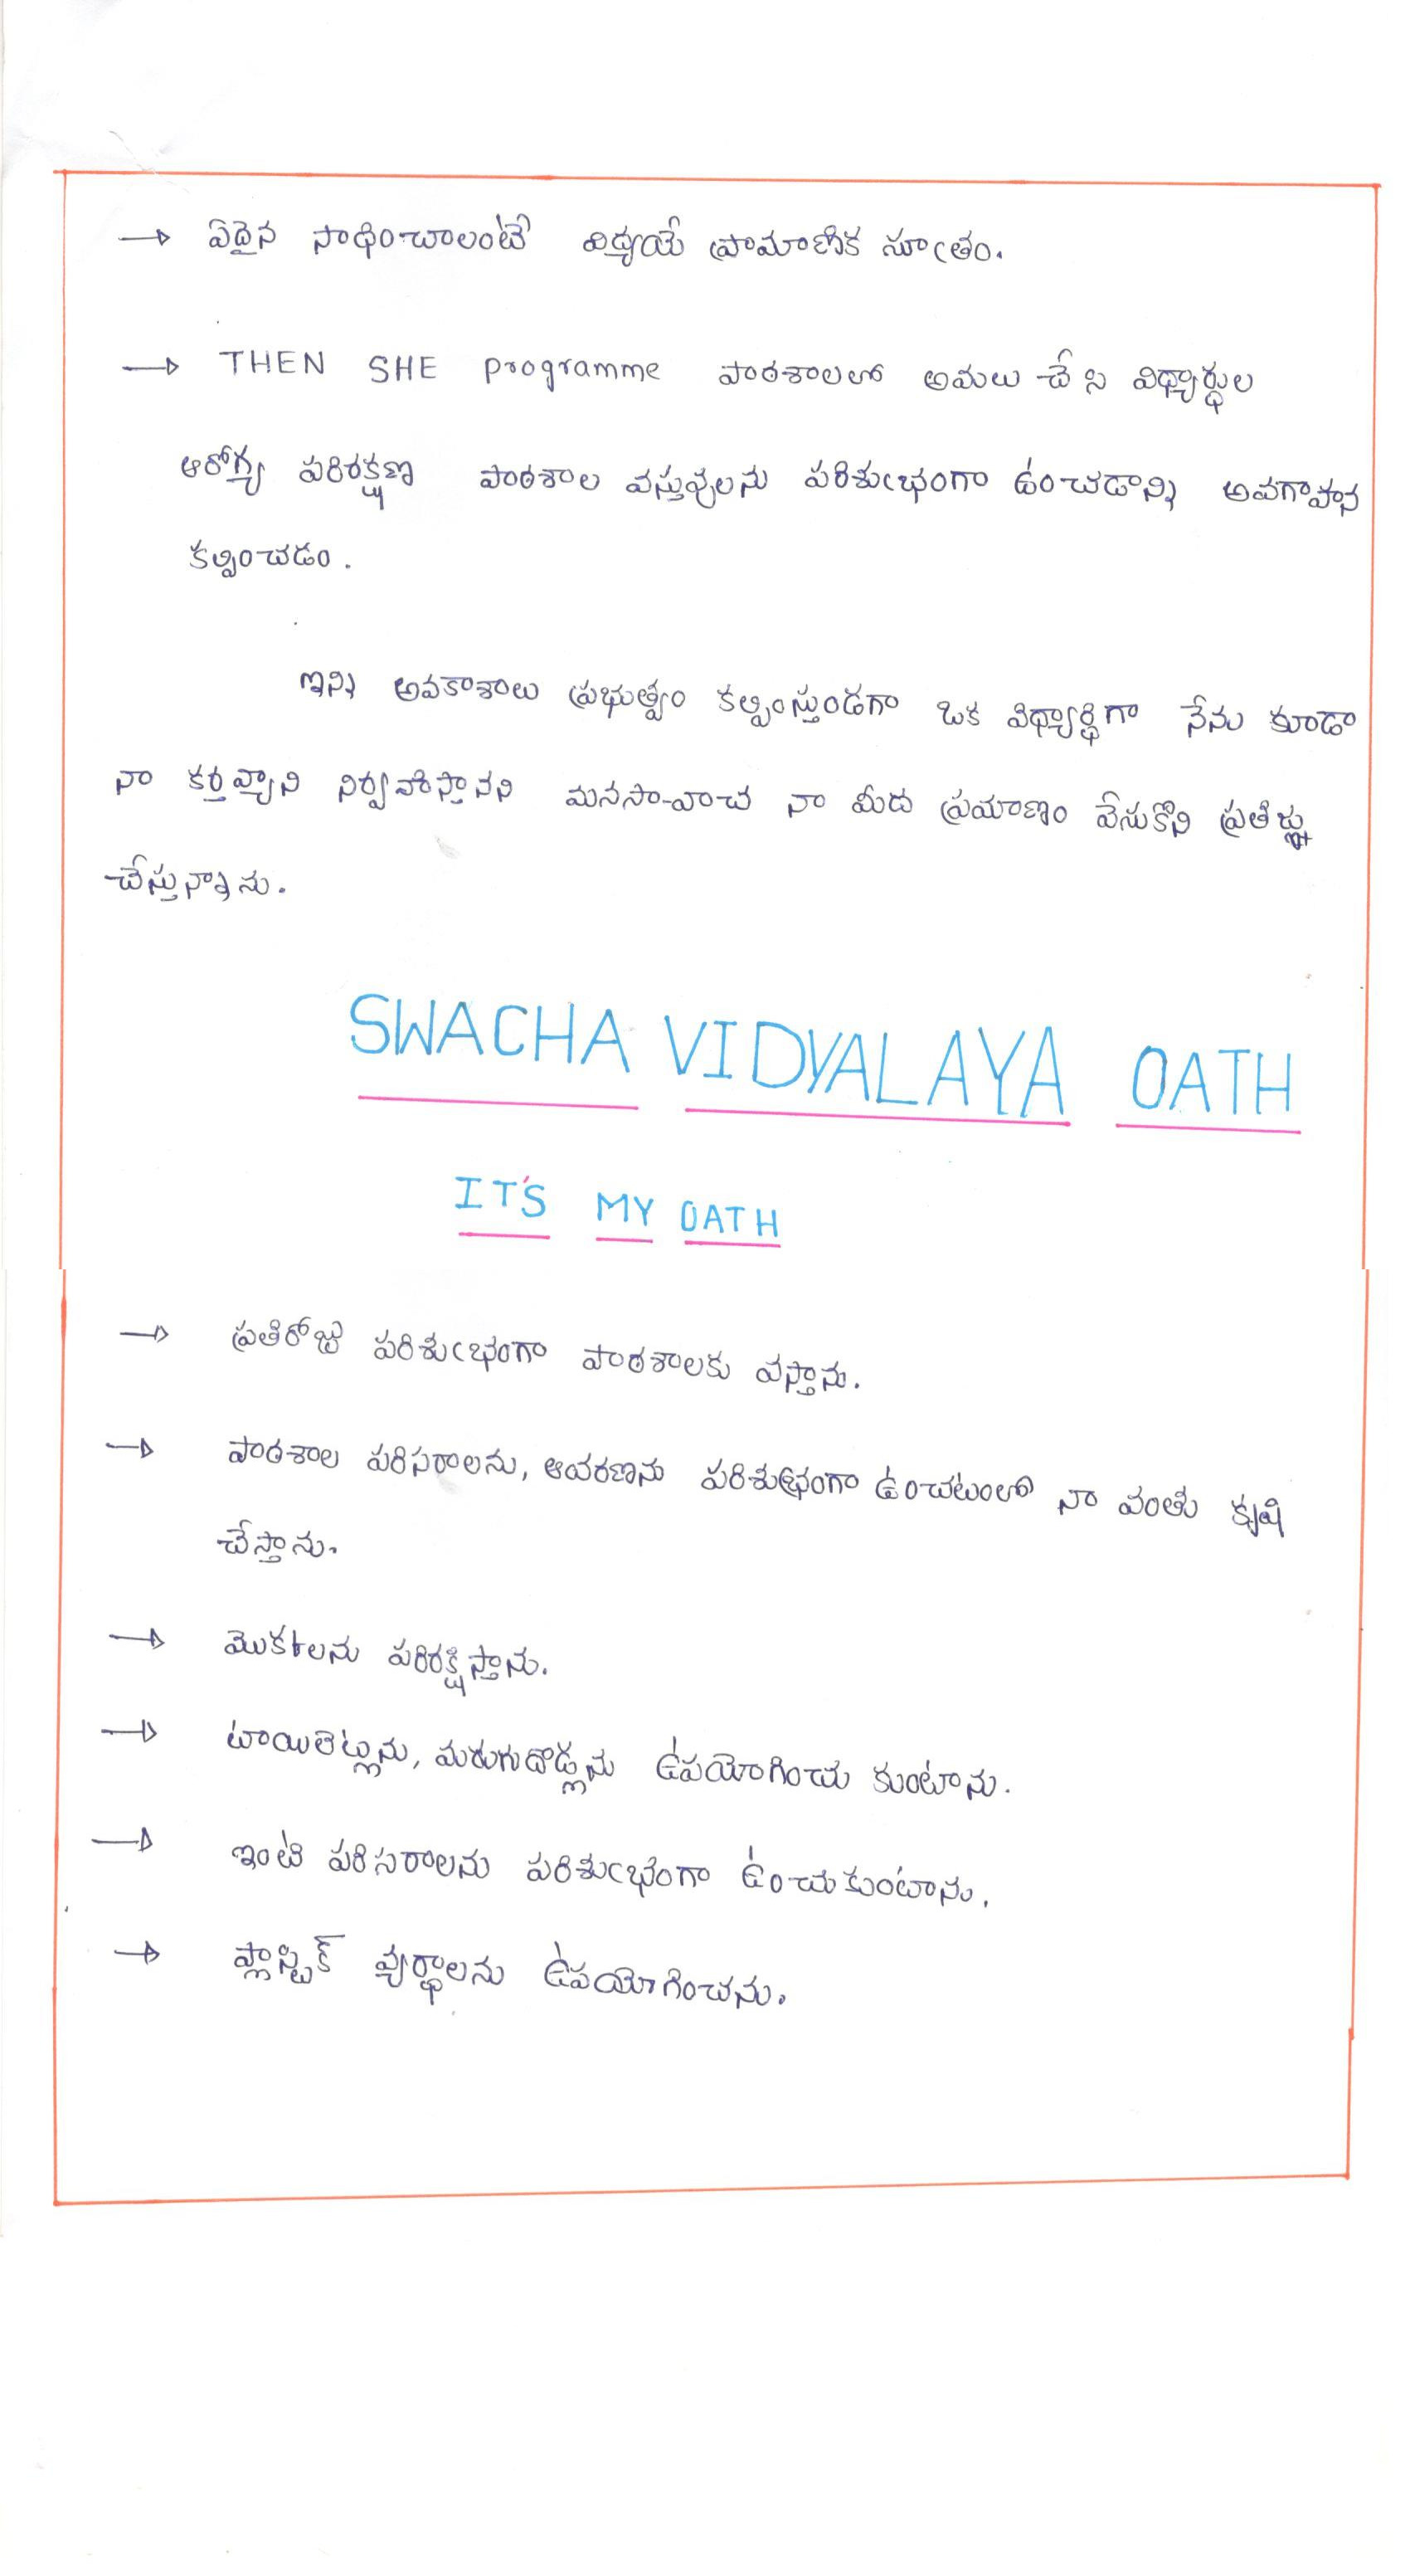 → ఏదైన సాధించాలంటే విద్యయే ప్రామాణిక సూత్రం.
→ THEN SHE programme పాఠశాలలో అమలు చేసి విధ్యార్ధుల
ఆరోగ్య పరిరక్షణ పాఠశాల వస్తువులను పరిశుభ్రంగా ఉంచడాన్ని అవగాహన
కల్పించడం.
ఇన్ని అవకాశాలు ప్రభుత్వం కల్పింస్తుండగా ఒక విధ్యార్థిగా నేను కూడా
నా కర్తవ్యాని నిర్వహిస్తానని మనసా-వాచ నా మీద ప్రయాణం వేసుకొని ప్రతిజ్ఞ
చేస్తున్నాను.
SWACHA VIDYALAYA OATH
IT'S MY OATH
→ ప్రతిరోజు పరిశుభ్రంగా పాఠశాలకు వస్తాను.
→ పాఠశాల పరిసరాలను, ఆవరణను పరిశుభ్రంగా ఉంచటంలో నా వంతు కృషి
చేస్తాను.
→ మొక్కలను పరిరక్షిస్తాను.
→ టాయిలెట్లును, మరుగుదొడ్లను ఉపయోగించు కుంటాను.
→ ఇంటి పరిసరాలను పరిశుభ్రంగా ఉంచుకుంటాను.
→ ప్లాస్టిక్ వ్యర్థాలను ఉపయోగించను.